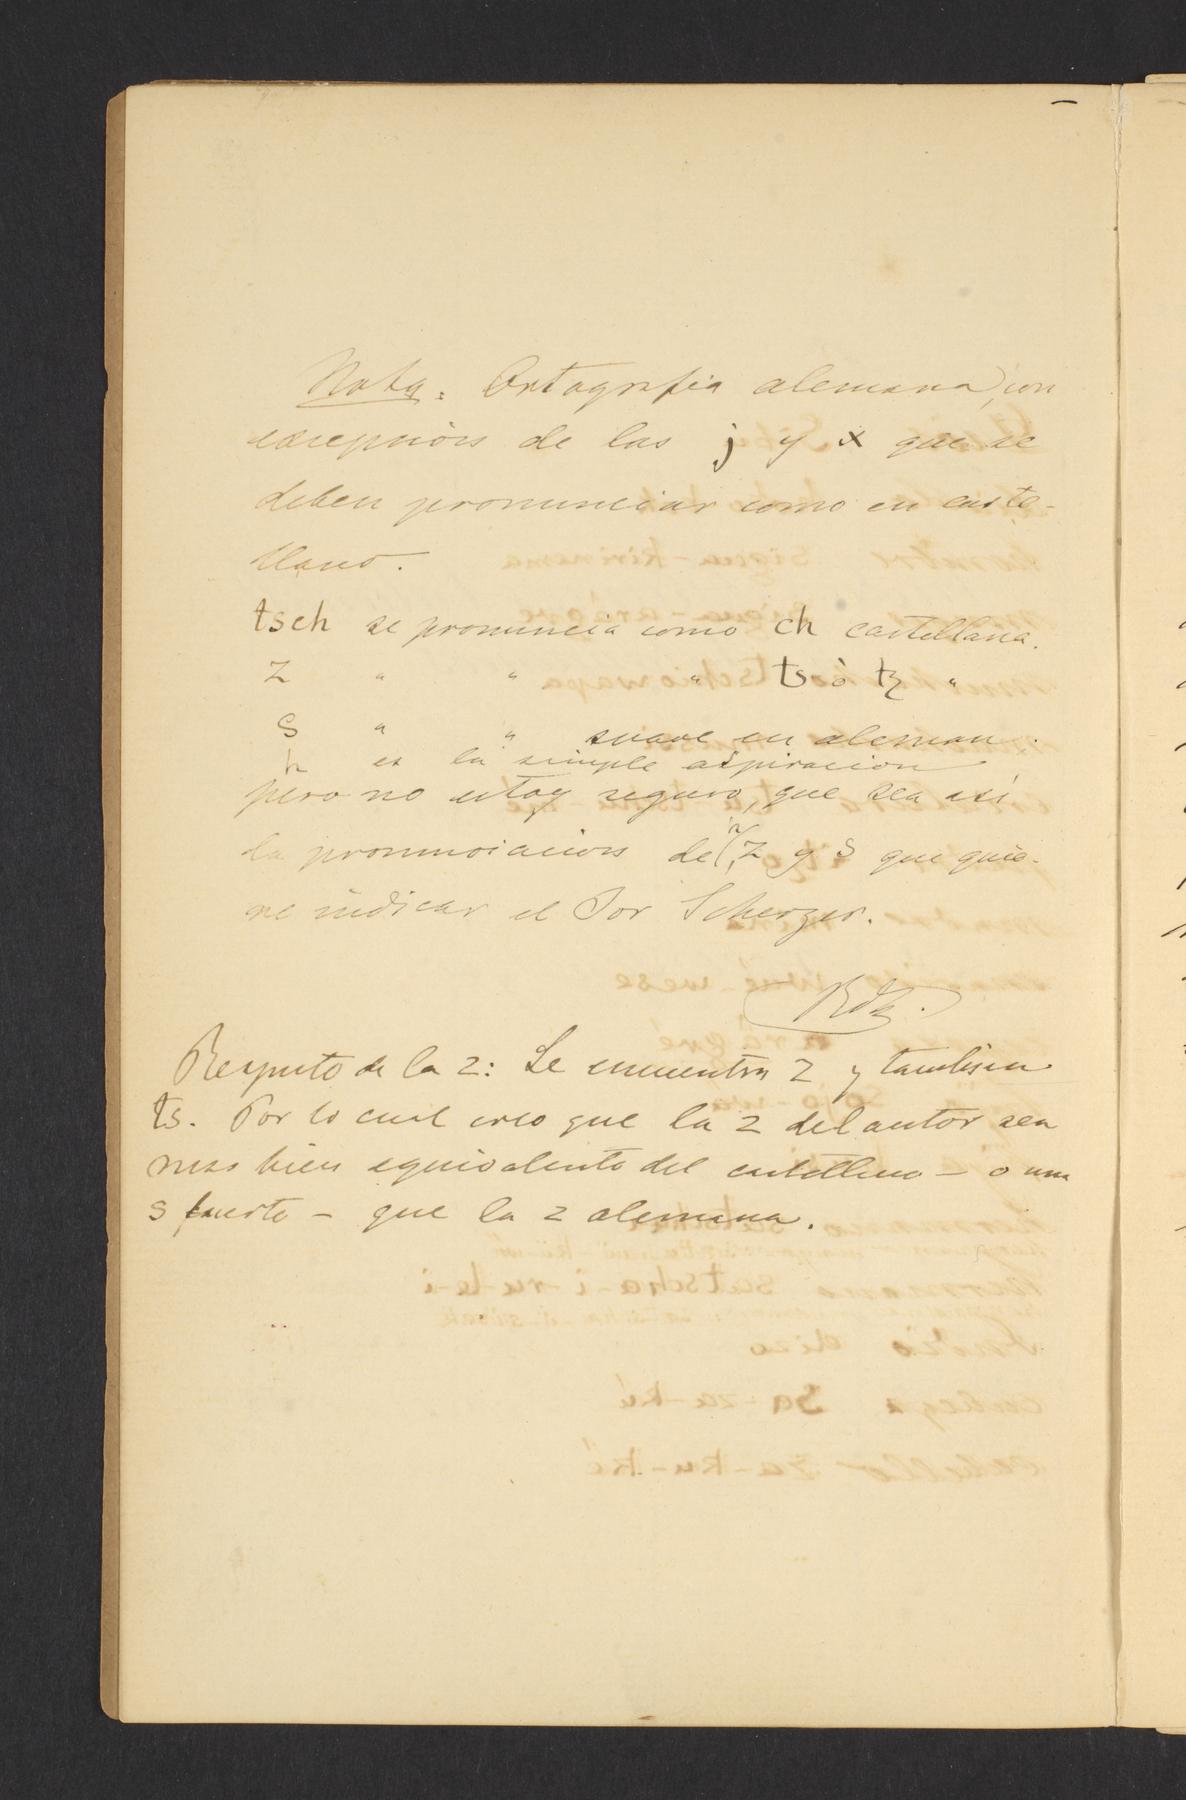 Nota: Ortografia alemana, con
excepcion de las j y x que se
deben pronunciar como en caste-
llano.
tsch se pronuncia como ch castellana.
z " " " ts ò tz "
s " " suave en aleman.
h es la simple aspiracion
pero no estoy seguro, que sea asi
la pronunciacion de h, z y s que quie-
re indicar el Dor Scherzer.
Respecto de la z: Se encuentra z y tambien
ts. Por lo cual creo que la z del autor sea
mas bien equivalente del castellano – o una
s fuerte – que la z alemana.